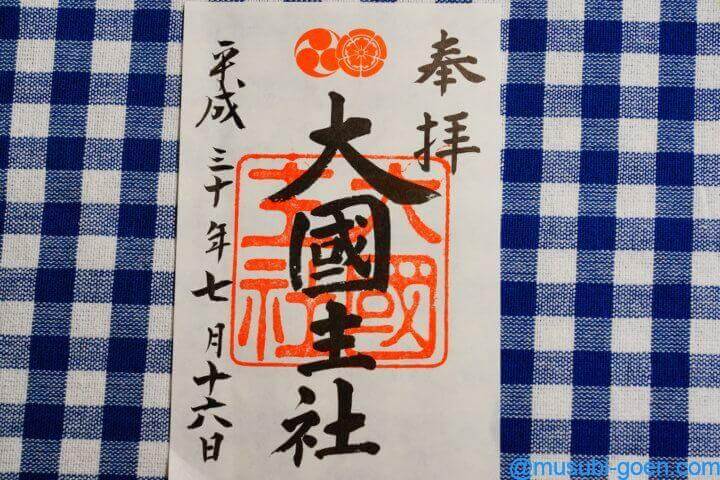 奉拝
大國主社
大國主社
平成三十年七月十六日
@musubi-goen.com